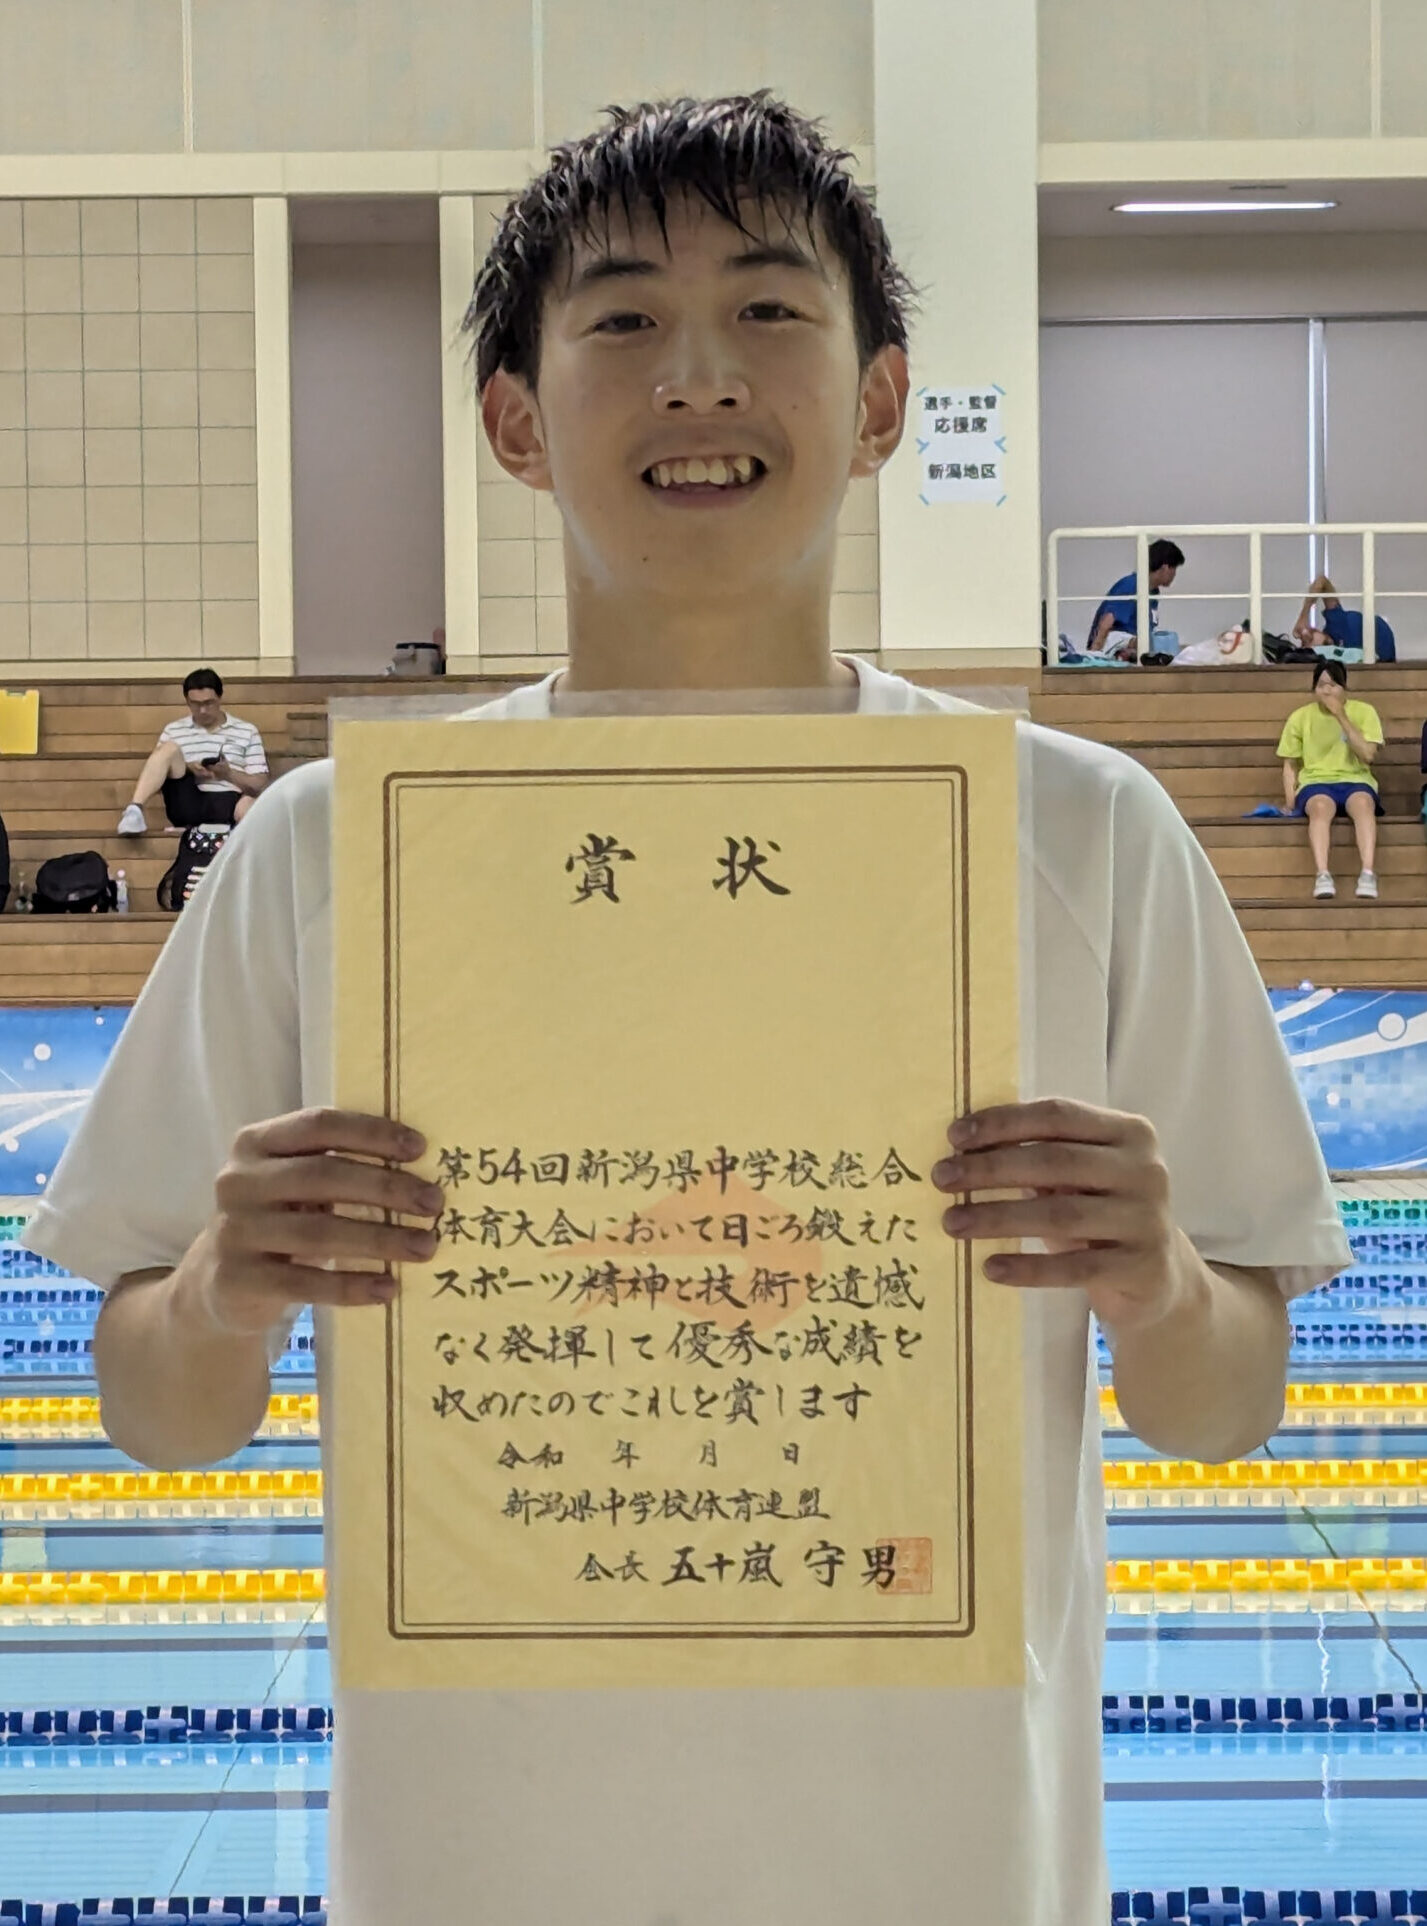 選手・監督
応援席
新潟地区
賞 状
第54回新潟県中学校総合
体育大会において日ごろ鍛えた
スポーツ精神と技術を遺憾
なく発揮して優秀な成績を
収めたのでこれを賞します
令和 年 月 日
新潟県中学校体育連盟
会長 五十嵐 守男